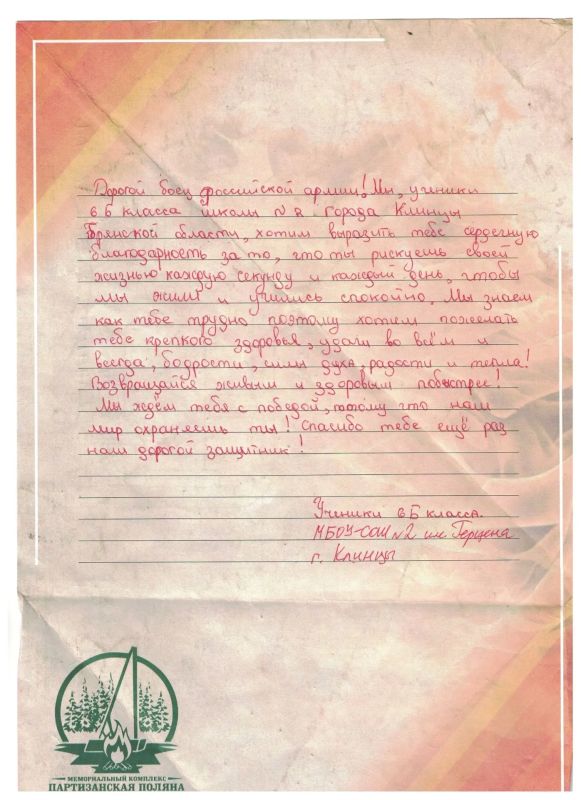 Дорогой боец российской армии! Мы, ученики
6 Б класса школы №2 города Клинцы
Брянской области, хотим выразить тебе сердечную
благодарность за то, что ты рискуешь своей
жизнью каждую секунду и каждый день, чтобы
мы жили и учились спокойно. Мы знаем
как тебе трудно поэтому хотим пожелать
тебе крепкого здоровья, удачи во всём и
всегда, бодрости, силы духа, радости и тепла!
Возвращайся живым и здоровым побыстрее!
Мы ждём тебя с победой, потому что наш
мир охраняешь ты! Спасибо тебе ещё раз
наш дорогой защитник!
Ученики 6Б класса.
МБОУ-СОШ №2 им. Герцена
г. Клинцы
МЕМОРИАЛЬНЫЙ КОМПЛЕКС
ПАРТИЗАНСКАЯ ПОЛЯНА